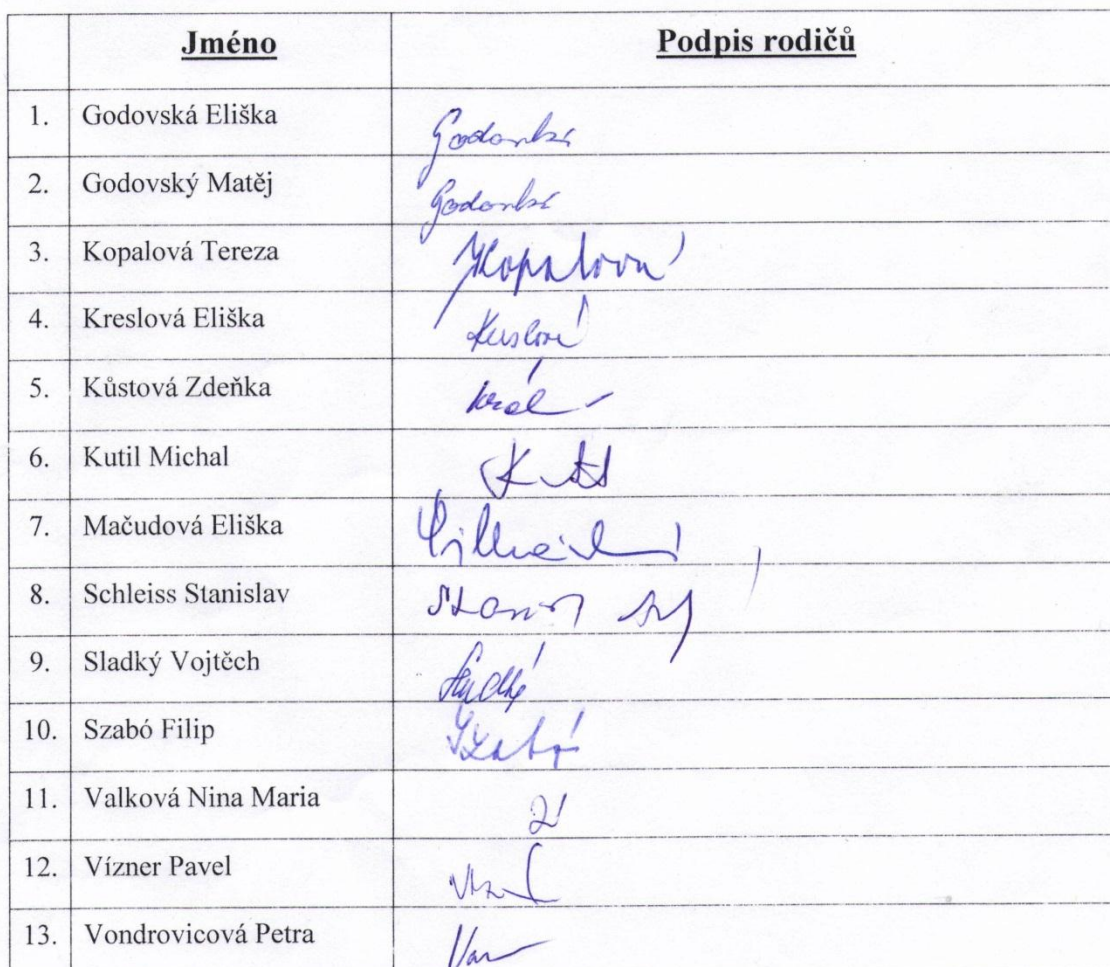 Jméno Podpis rodičů
1. Godovská Eliška
2. Godovský Matěj
3. Kopalová Tereza Kopalová
4. Kreslová Eliška Kreslová
5. Kůstová Zdeňka
6. Kutil Michal
7. Mačudová Eliška
8. Schleiss Stanislav
9. Sladký Vojtěch Sladký
10. Szabó Filip Szabó
11. Valková Nina Maria
12. Vízner Pavel
13. Vondrovicová Petra